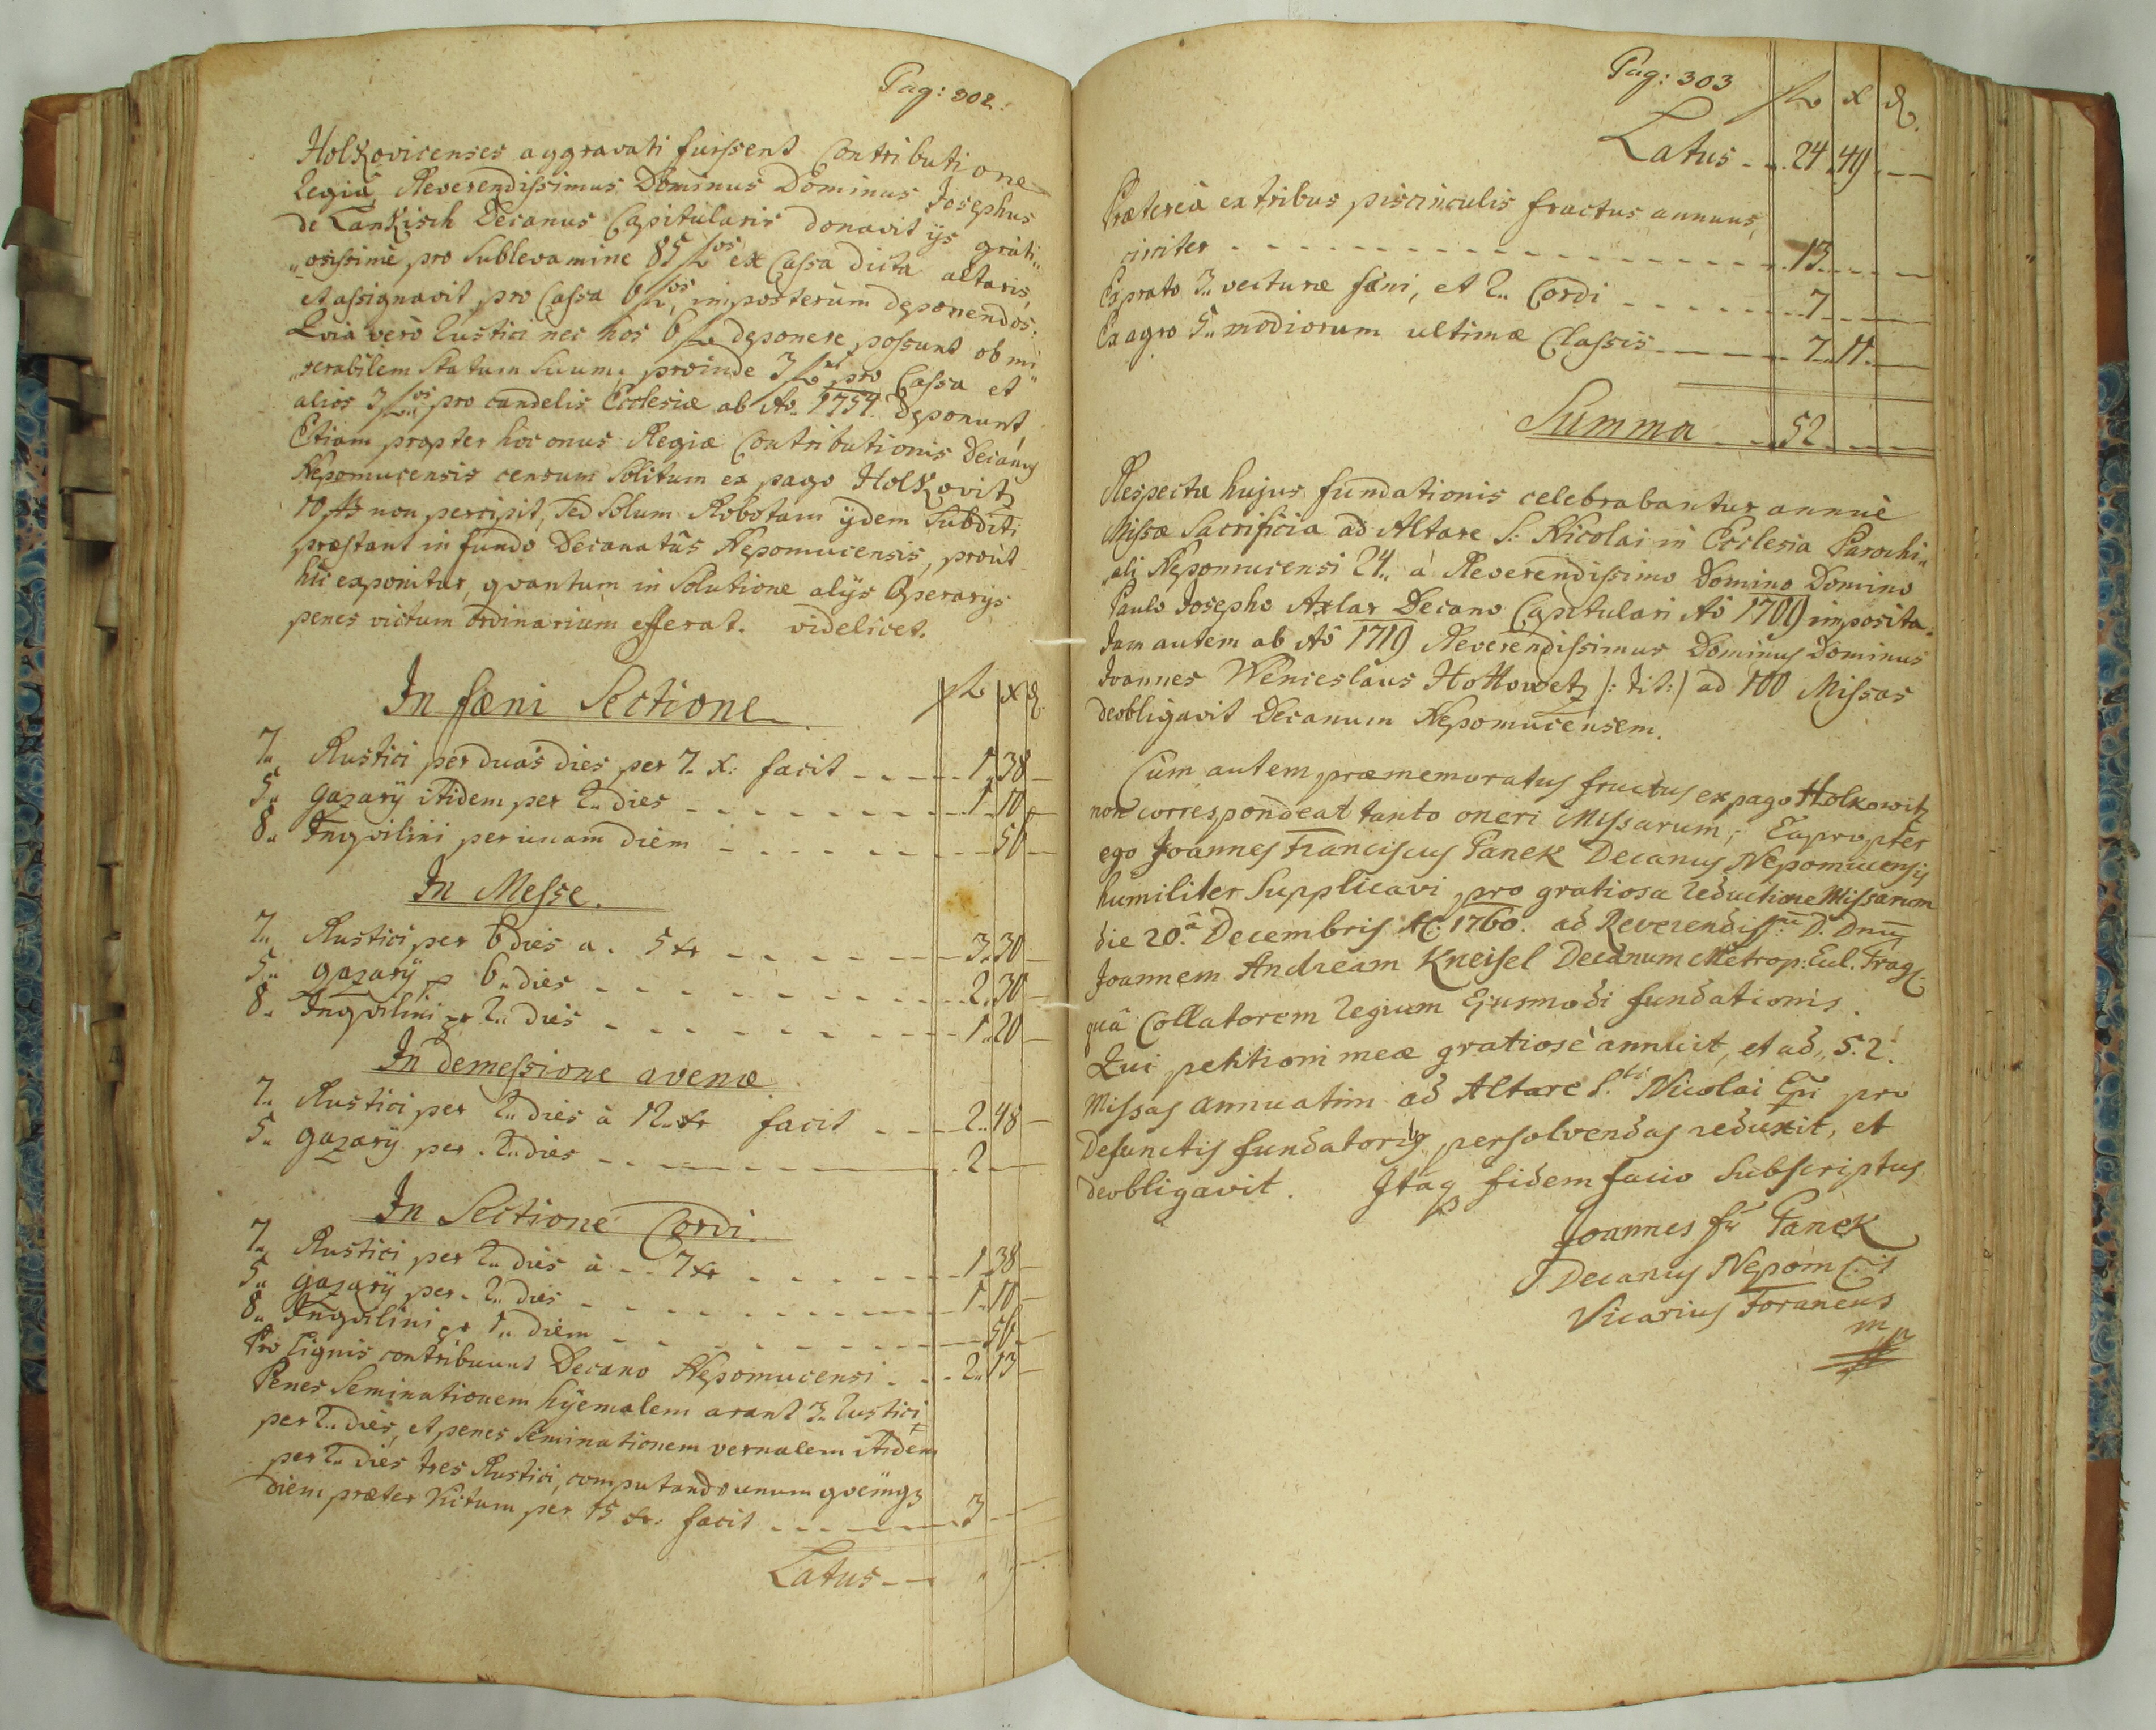 Pag: 302.
Holkovicenses aggravati fuissent Contributione
Regia, Reverendissimus Dominus Dominus Josephus
de Lankisch Decanus Capitularis donavit ijs grati„
„osissime pro Sublevamine 85 fl.os ex Cassa dicta altaris,
et assignavit pro Cassa 6 fl.os imposterum deponendos.
Quia vero Rustici nec hos 6 fl. deponere possunt ob mi„
„serabilem Statum Suum, proinde 3 fl. pro Cassa et
alios 3 fl.os pro candelis Ecclesiæ ab Ao. 1754. deponunt,
Etiam propter hoc onus Regiæ Contributionis Decanus
Nepomucensis censum Solitum ex pago Holkovitz
10 fl. non percipit, Sed Solum Robotam ijdem Subditi
præstant in fundo Decanatûs Nepomucensis, prout
hic exponitur, qvantum in Solutione alijs Operarijs
penes victum ordinarium efferat. videlicet.
In fæni Sectione fl. x d.
7„ Rustici per duas dies per 7. x: facit 1„ 38
5„ gazarÿ itidem per 2„ dies 1„ 10
8„ Inqvilini per unam diem 56
In Messe.
7„ Rustici per 6 dies a. 5 xr 3„ 30
5„ gazarÿ p 6„ dies 2„ 30
8„ Inqvilini pr 2„ dies 1„ 20
In demessione avenæ
7„ Rustici per 2„ dies à 12„ xr facit 2„ 48
5„ gazarÿ per 2„ dies 2
In Sectione Cordi.
7„ Rustici per 2„ dies à 7 xr 1„ 38
5„ gazarÿ per 2„ dies 1„ 10
8„ Inqvilini pr 1„ diem 56
Pro lignis contribuunt Decano Nepomucensi 2„ 13
Penes Seminationem hÿemalem arant 3„ Rustici
per 2„ dies, et penes Seminationem vernalem itidem
per 2„ dies tres Rustici, computando unum qvemqz
diem præter Victum per 15 xr. facit 3
Latus
Pag: 303
fl. x d.
Latus 24 49
Præterea ex tribus piscinculis fructus annuus,
circiter 13
Ex prato 3„ vecturæ fæni, et 2„ Cordi 7
Ex agro 5„ modiorum ultimæ Classis 7„ 11
Summa 52
Respectu hujus fundationis celebrabantur annuè
Missæ Sacrificia ad Altare S: Nicolai in Ecclesia Parochi„
„ali Nepomucensi 24„ à Reverendissimo Domino Domino
Paulo Josepho Axlar Decano Capitulari Aô 1709 imposita.
Jam autem ab Aô 1719 Reverendissimus Dominus Dominus
Joannes Wenceslaus Hottowetz /: Tit:/ ad 100 Missas
deobligavit Decanum Nepomucensem.
Cum autem præmemoratus fructus ex pago Holkowitz
non correspondeat tanto oneri Missarum, Eapropter
ego Joannes Franciscus Panek Decanus Nepomucensis
humiliter Supplicavi pro gratiosa reductione Missarum
die 20.â Decembris A: 1760. ad Reverendiss: D. Dnũ
Joannem Andream Kneisel Decanum Metrop: Eccl. Prag:
quâ Collatorem Regium Ejusmodi fundationis.
Qui petitioni meæ gratiosè annuit, et ad„ 52.
Missas annuatim ad Altare S.ti Nicolai Epi pro
Defunctis fundatoribus persolvendas reduxit, et
deobligavit. Itaq fidem facio Subscriptus
Joannes fr Panek
Decanus Nepom
Vicarius Foraneus
mp